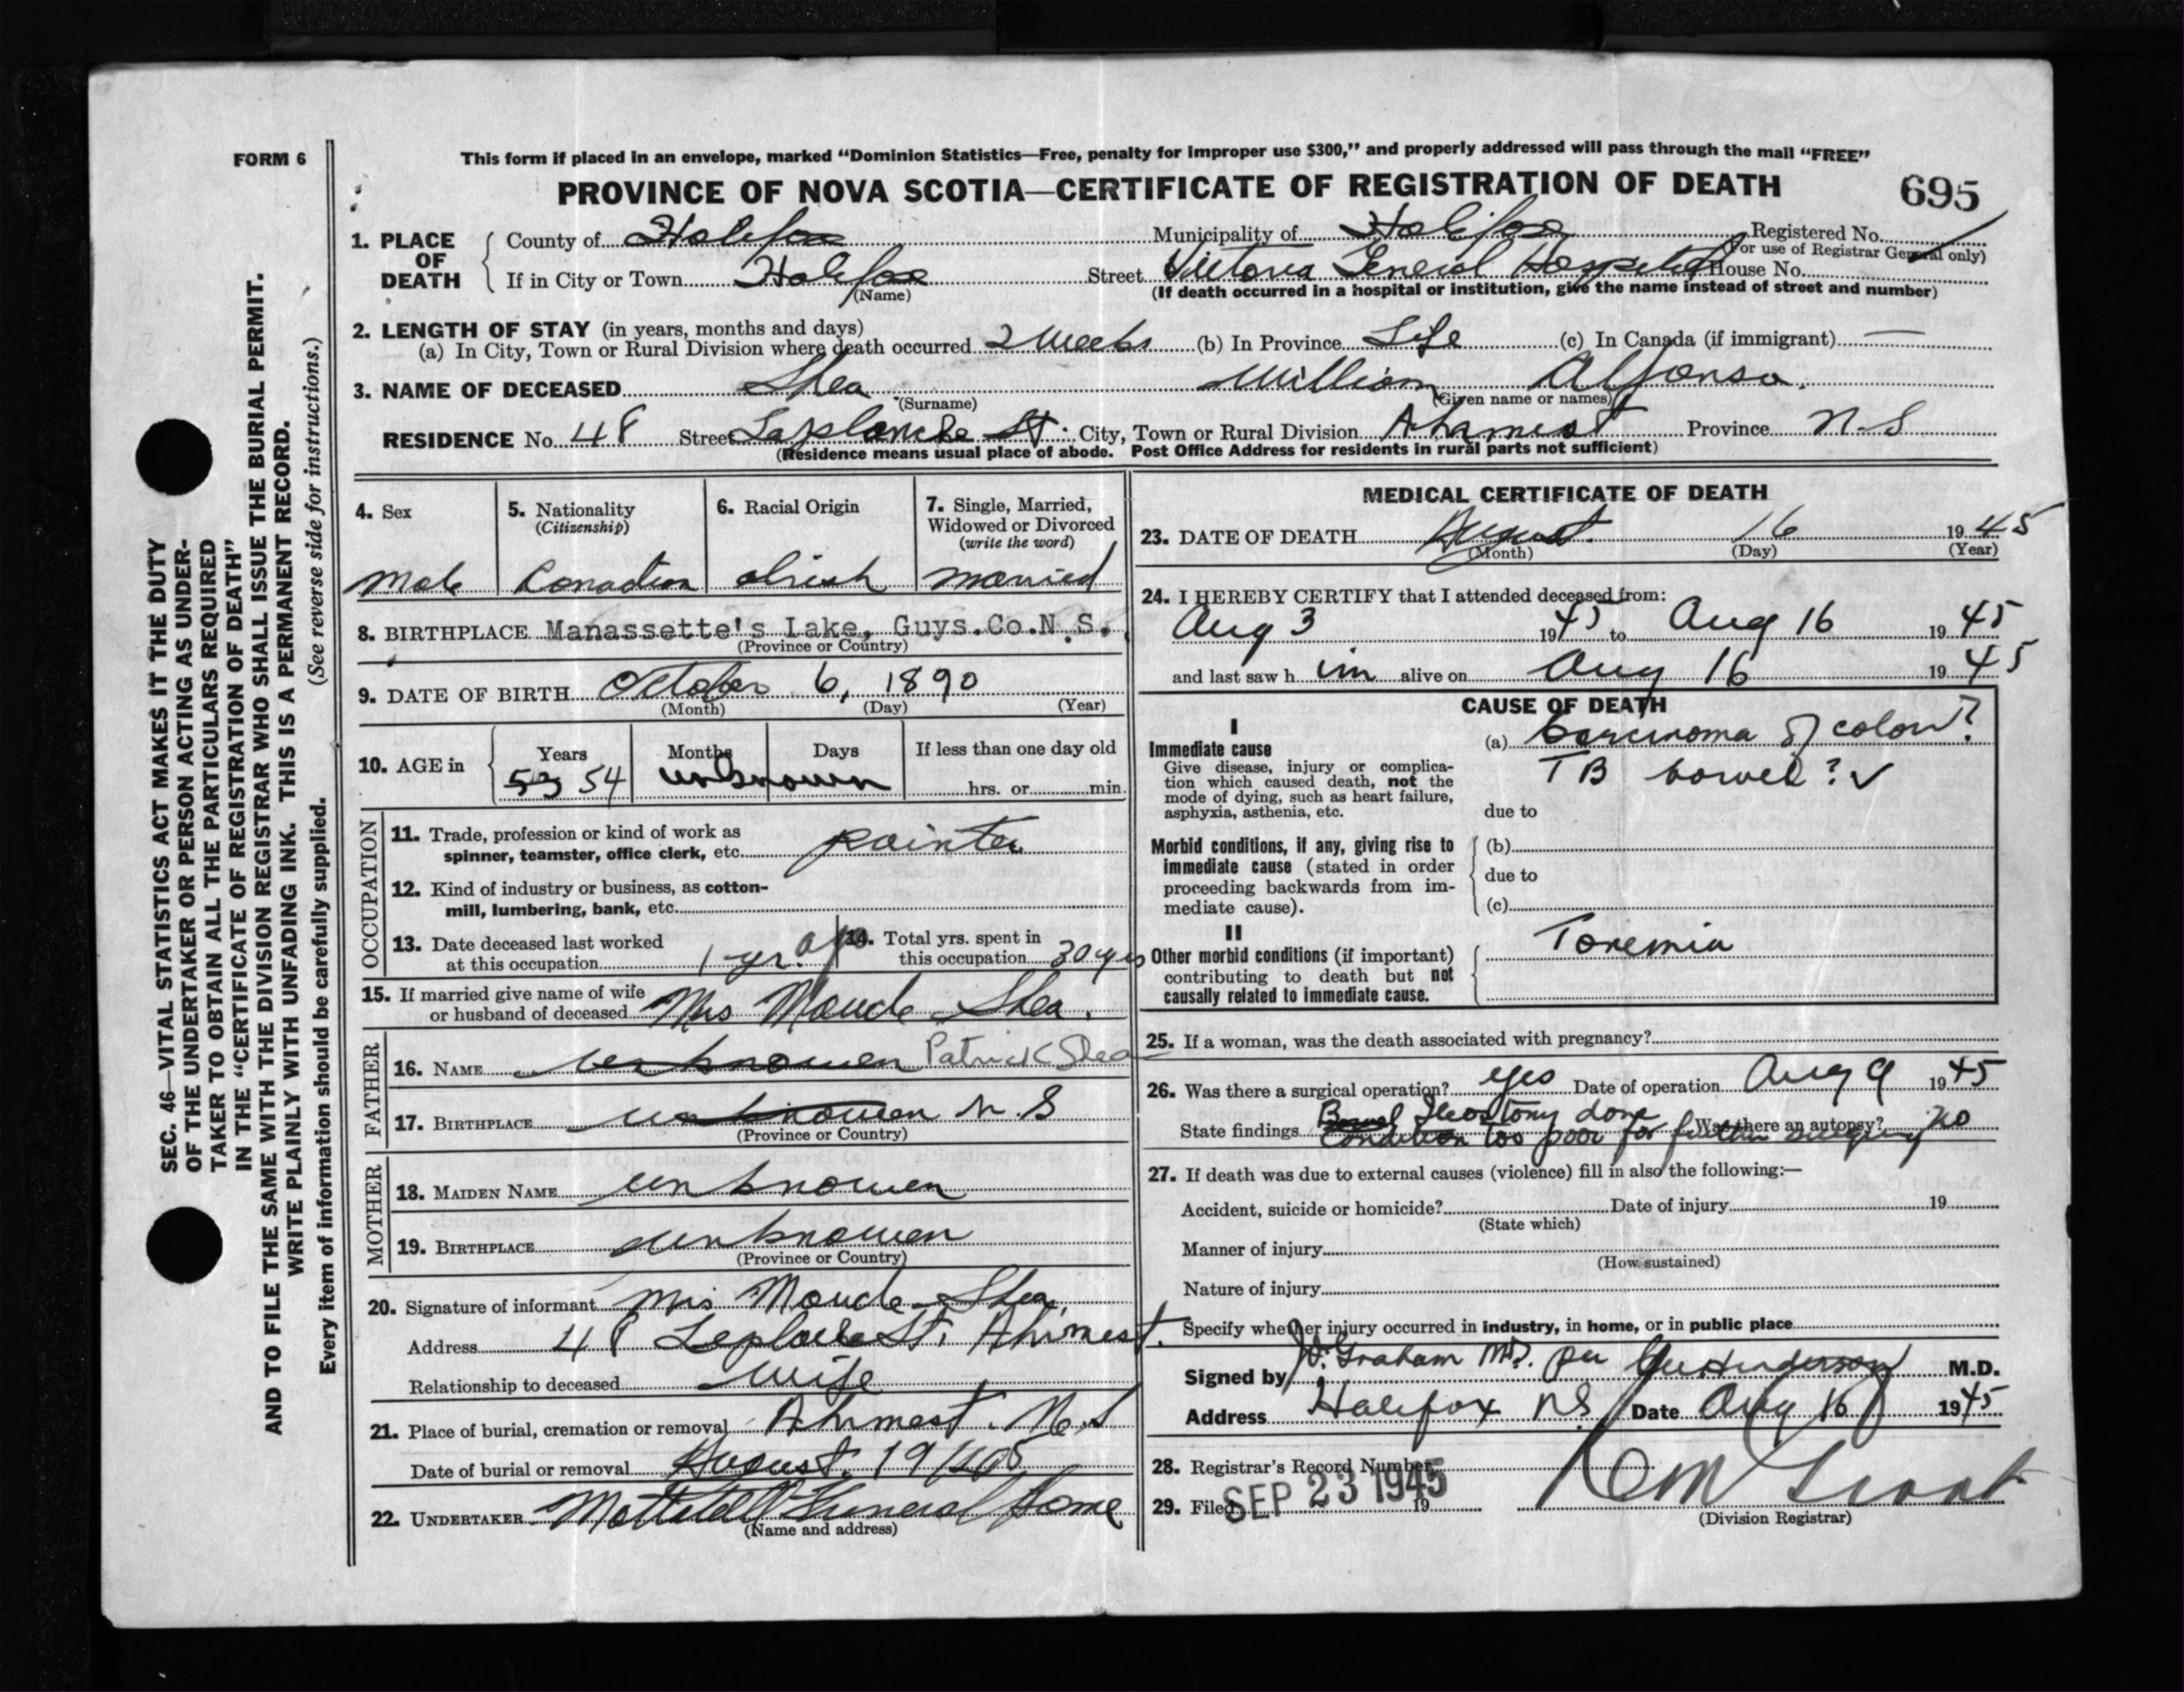 FORM 6
This form if placed in an envelope, marked “Dominion Statistics—Free, penalty for improper use $300,” and properly addressed will pass through the mail “FREE”
PROVINCE OF NOVA SCOTIA—CERTIFICATE OF REGISTRATION OF DEATH 695
1. PLACE OF DEATH County of Halifax Municipality of Halifax Registered No.
(For use of Registrar General only)
If in City or Town Halifax Street Victoria General Hospital House No.
(Name) (If death occurred in a hospital or institution, give the name instead of street and number)
2. LENGTH OF STAY (in years, months and days)
(a) In City, Town or Rural Division where death occurred 2 weeks (b) In Province Life (c) In Canada (if immigrant) —
3. NAME OF DECEASED Shea William Alfonso.
(Surname) (Given name or names)
RESIDENCE No. 48 Street Laplanche St. City, Town or Rural Division Ahmest Province N.S
(Residence means usual place of abode. Post Office Address for residents in rural parts not sufficient)
4. Sex 5. Nationality (Citizenship) 6. Racial Origin 7. Single, Married, Widowed or Divorced (write the word)
Male Canadian Irish married
8. BIRTHPLACE Manassette's Lake, Guys.Co.N.S.
(Province or Country)
9. DATE OF BIRTH October 6, 1890
(Month) (Day) (Year)
10. AGE in Years Months Days If less than one day old
53 54 unknown hrs. or min.
OCCUPATION
11. Trade, profession or kind of work as
spinner, teamster, office clerk, etc. painter
12. Kind of industry or business, as cotton-
mill, lumbering, bank, etc.
13. Date deceased last worked
at this occupation 1 yr. ago
14. Total yrs. spent in
this occupation 30 yrs
15. If married give name of wife
or husband of deceased Mrs Maude Shea.
FATHER
16. NAME unknowen Patrick Shea
17. BIRTHPLACE unknowen N.S
(Province or Country)
MOTHER
18. MAIDEN NAME unknowen
19. BIRTHPLACE unknowen
(Province or Country)
20. Signature of informant Mrs Maude Shea.
Address 48 St. Ahmest.
Relationship to deceased Wife
21. Place of burial, cremation or removal Ahmest. N.S
Date of burial or removal August. 19/45
22. UNDERTAKER Funeral Home
(Name and address)
MEDICAL CERTIFICATE OF DEATH
23. DATE OF DEATH August 16 1945
(Month) (Day) (Year)
24. I HEREBY CERTIFY that I attended deceased from:
Aug 3 1945 to Aug 16 1945
and last saw him alive on Aug 16 1945
CAUSE OF DEATH
I
Immediate cause
Give disease, injury or complica-
tion which caused death, not the
mode of dying, such as heart failure,
asphyxia, asthenia, etc.
(a) Carcinoma of colon?
TB bowel? ✓
due to
Morbid conditions, if any, giving rise to
immediate cause (stated in order
proceeding backwards from im-
mediate cause).
(b)
due to
(c)
II
Other morbid conditions (if important)
contributing to death but not
causally related to immediate cause.
Toxemia
25. If a woman, was the death associated with pregnancy?
26. Was there a surgical operation? yes Date of operation Aug 9 1945
State findings Bowel Ileostomy done Was there an autopsy? no
Condition too poor for further surgery
27. If death was due to external causes (violence) fill in also the following:—
Accident, suicide or homicide? Date of injury 19
(State which)
Manner of injury
(How sustained)
Nature of injury
Specify whether injury occurred in industry, in home, or in public place
Signed by J.W. Graham M.D. per Henderson M.D.
Address Halifax NS Date Aug 16 1945
28. Registrar's Record Number
29. Filed SEP 23 1945 19
(Division Registrar)
SEC. 46—VITAL STATISTICS ACT MAKES IT THE DUTY
OF THE UNDERTAKER OR PERSON ACTING AS UNDER-
TAKER TO OBTAIN ALL THE PARTICULARS REQUIRED
IN THE “CERTIFICATE OF REGISTRATION OF DEATH”
AND TO FILE THE SAME WITH THE DIVISION REGISTRAR WHO SHALL ISSUE THE BURIAL PERMIT.
WRITE PLAINLY WITH UNFADING INK. THIS IS A PERMANENT RECORD.
Every item of information should be carefully supplied. (See reverse side for instructions.)